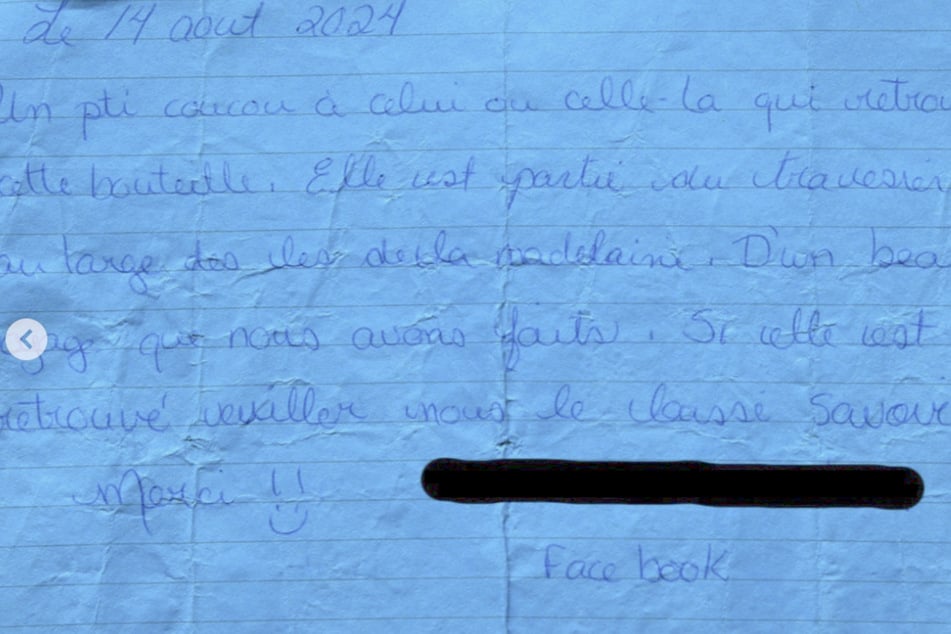 Le 14 aout 2024
Un pti coucou à celui ou celle-la qui retrou
cette bouteille. Elle est partie du traversier
au large des iles de la madelaine. D'un bea
que nous avons faits. Si cette est
retrouvé vevaller nous le laissé savoir
Merci !!
Face book